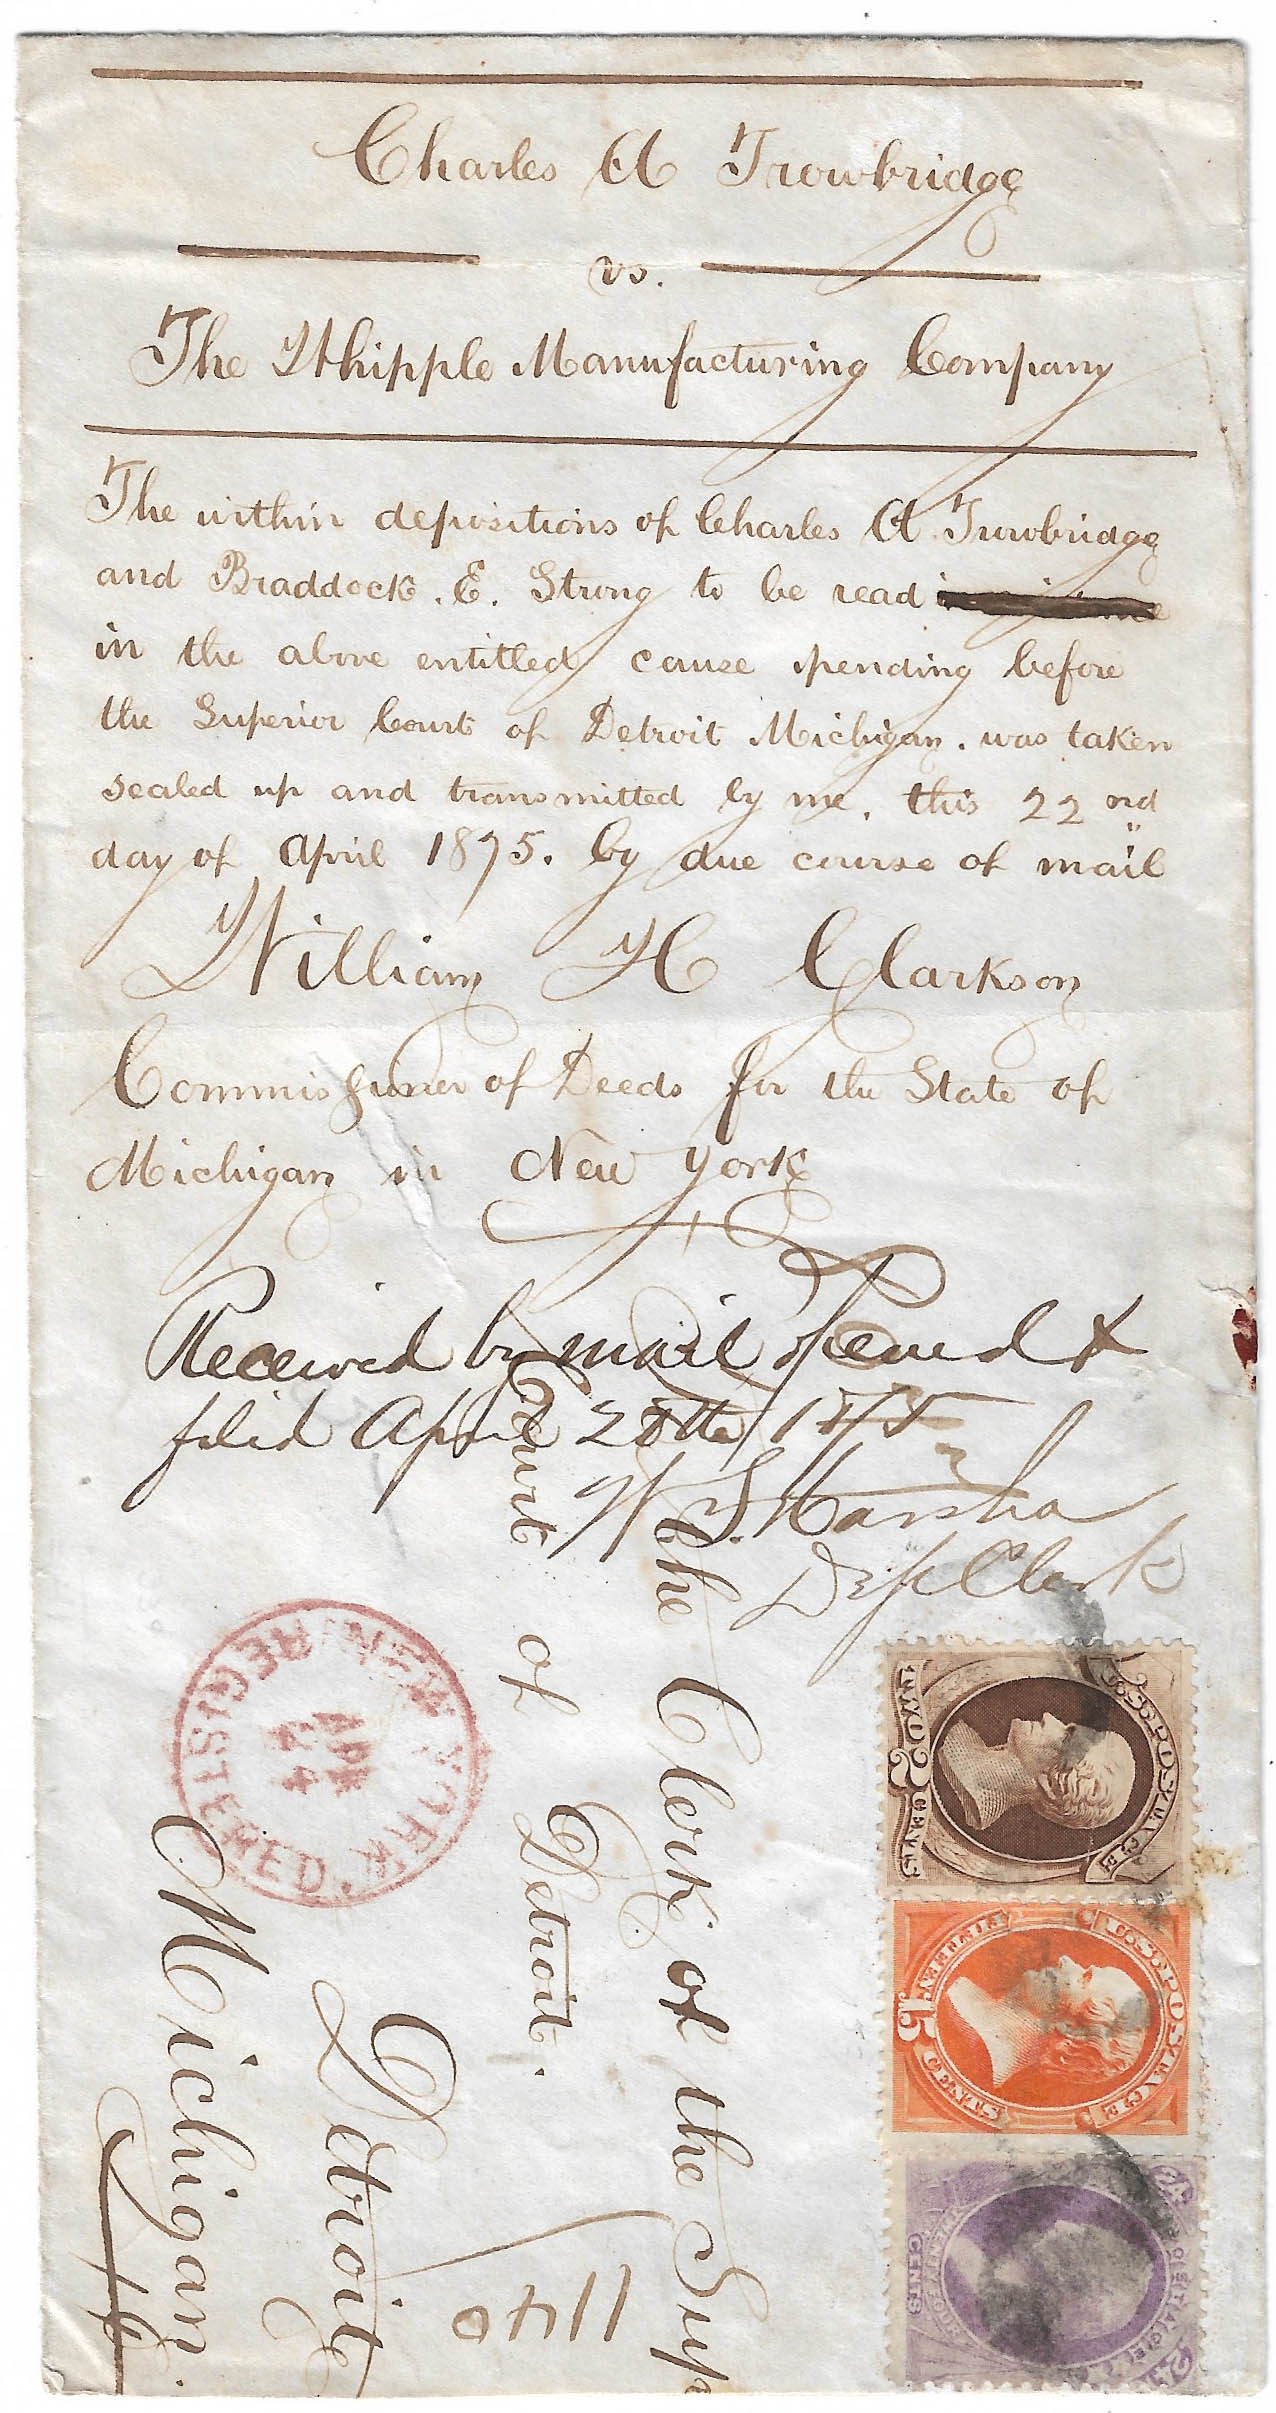 Charles A Trowbridge
vs.
The Whipple Manufacturing Company
The within depositions of Charles A. Trowbridge
and Braddock. E. Strong to be read
in the above entitled cause pending before
the Superior Court of Detroit Michigan. was taken
sealed up and transmitted by me, this 22nd
day of April 1875. by due course of mail
William H Clarkson
Commissioner of Deeds for the State of
Michigan in New York
Received by mail opened &
filed April 28th 1875
Dep Clerk
The Clerk of the Sup
Court of Detroit.
Detroit
Michigan.
1140
NEW YORK
APR
24
REGISTERED.
U.S. POSTAGE
TWO 2 CENTS
U.S. POSTAGE
FIFTEEN
15 CENTS
U.S. POSTAGE
24
TWENTY FOUR
CENTS